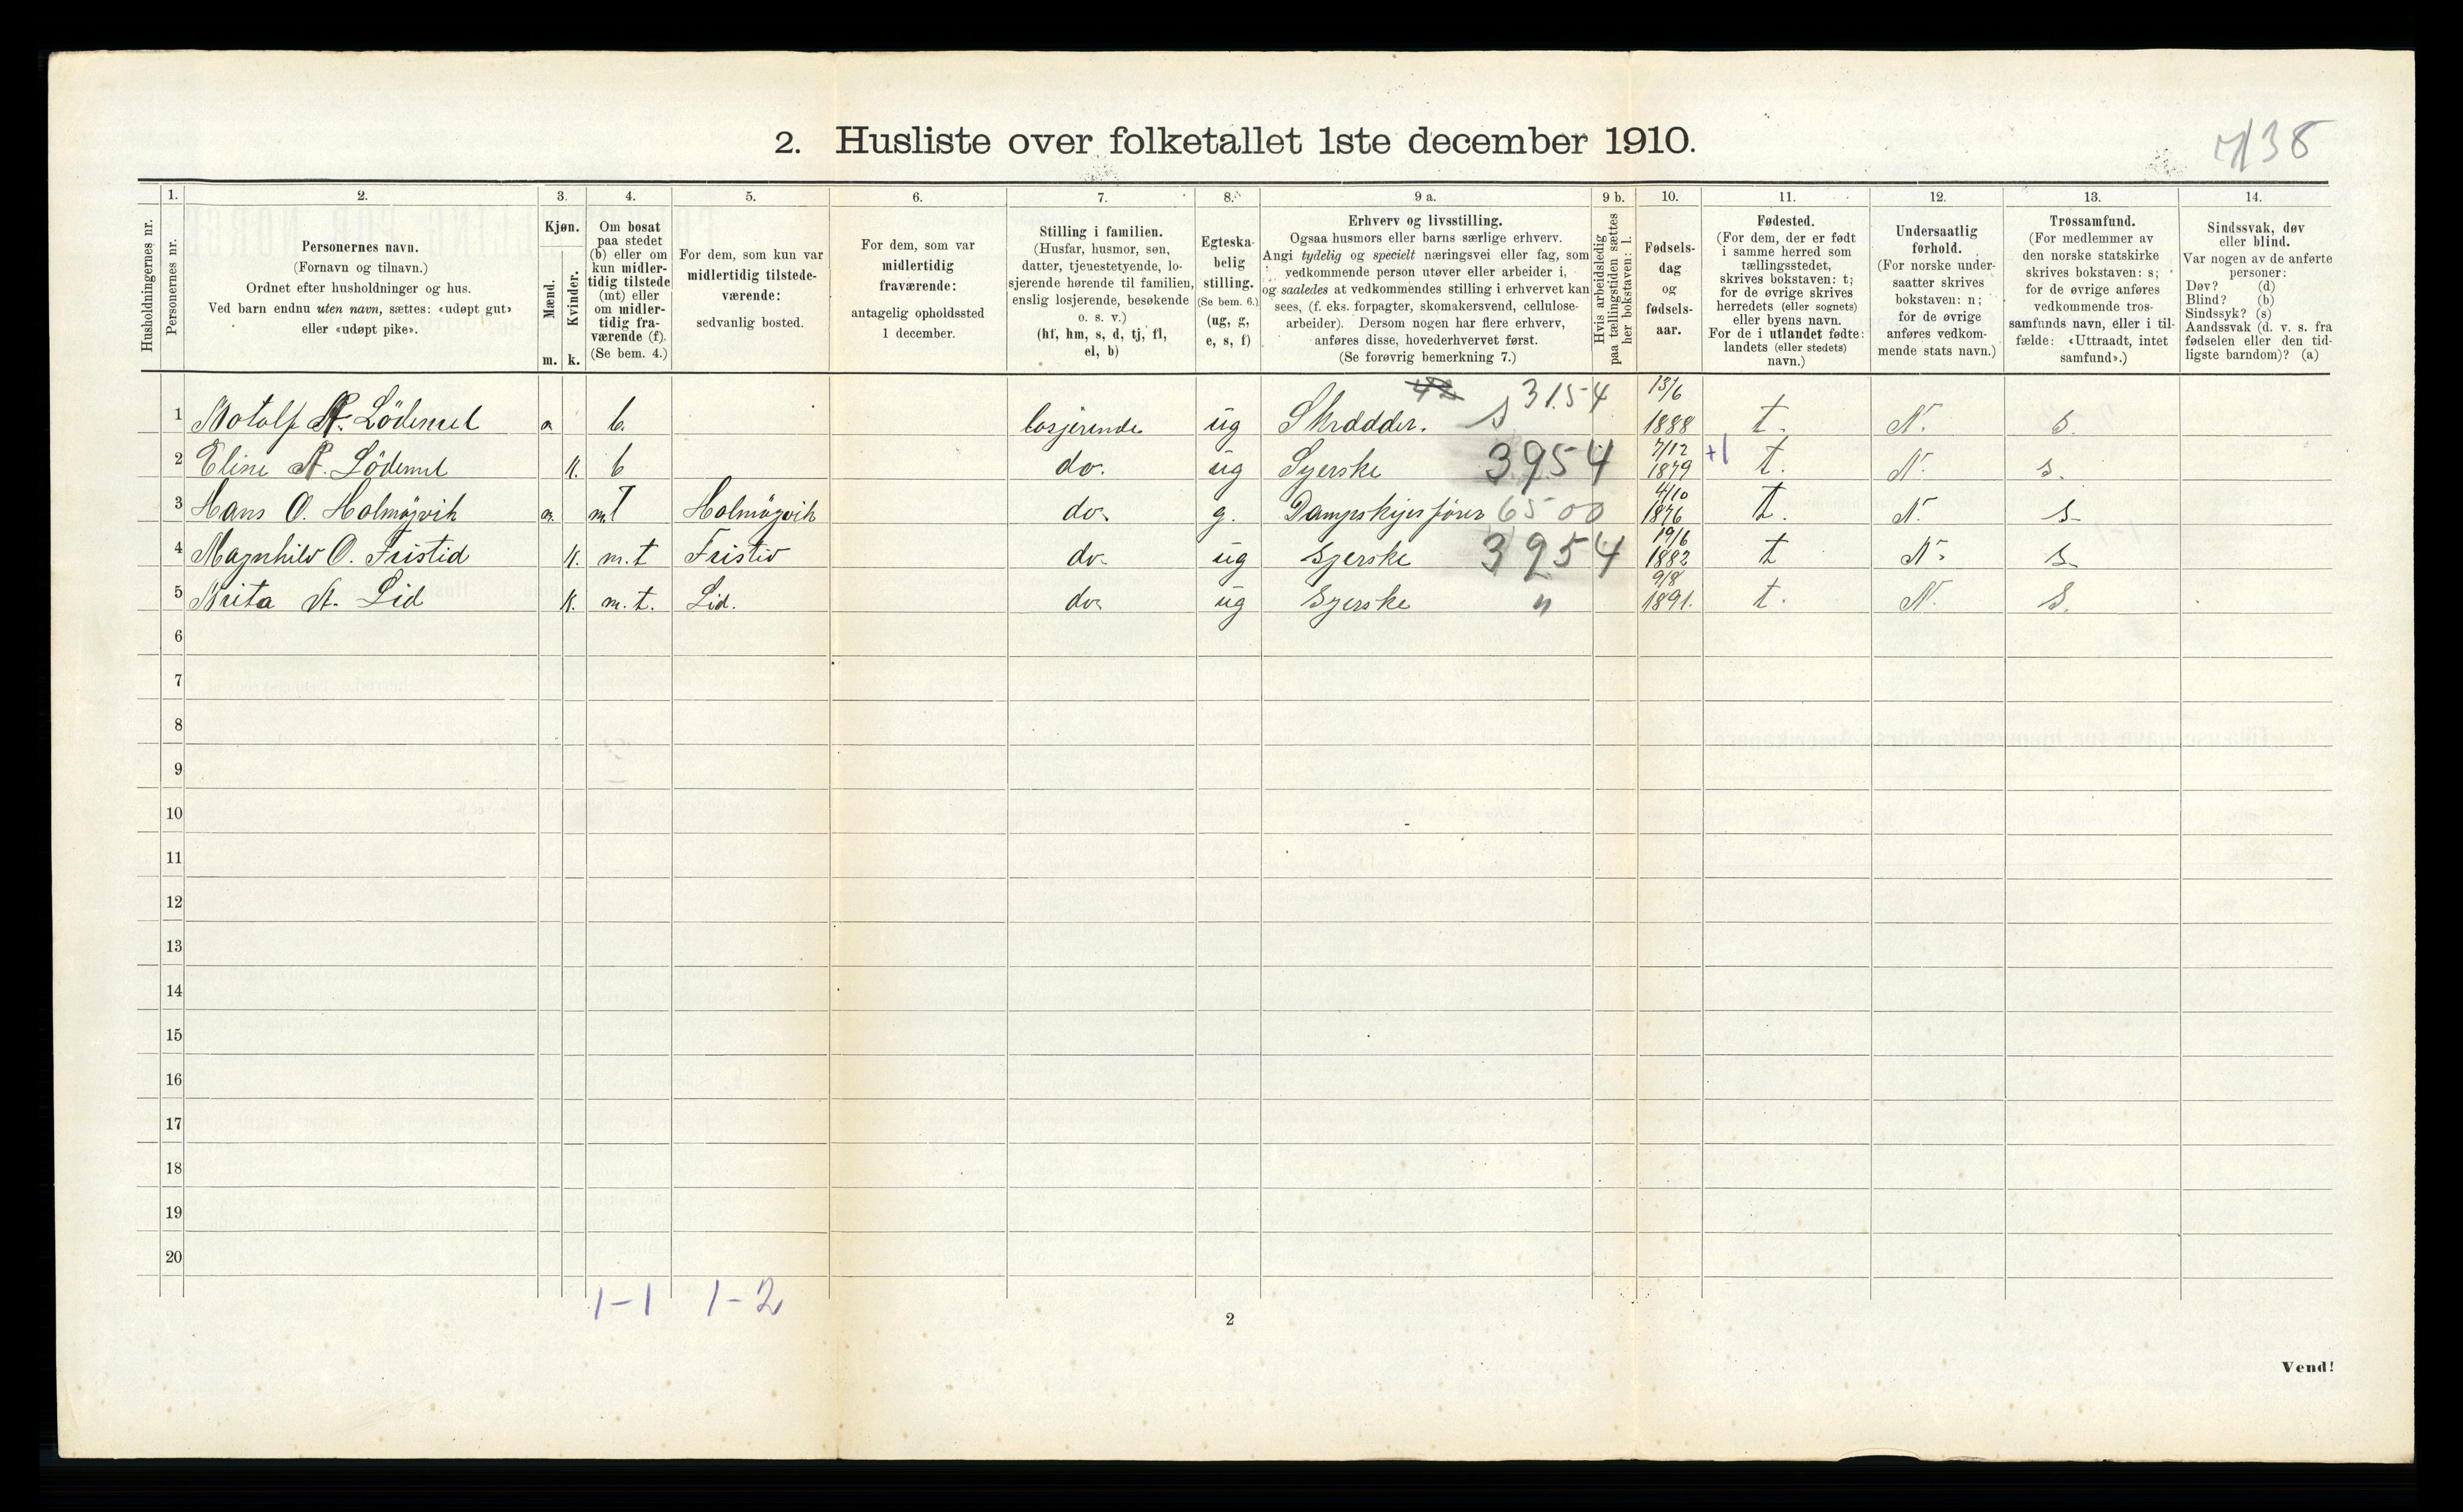 2. Husliste over folketallet 1ste december 1910.
7/38
Husholdningernes nr.
1. Personernes nr.
2. Personernes navn.
(Fornavn og tilnavn.)
Ordnet efter husholdninger og hus.
Ved barn endnu uten navn, sættes: «udøpt gut»
eller «udøpt pike».
3. Kjøn.
Mænd. Kvinder.
m. k.
4. Om bosat
paa stedet
(b) eller om
kun midler-
tidig tilstede
(mt) eller
om midler-
tidig fra-
værende (f).
(Se bem. 4.)
5. For dem, som kun var
midlertidig tilstede-
værende:
sedvanlig bosted.
6. For dem, som var
midlertidig
fraværende:
antagelig opholdssted
1 december.
7. Stilling i familien.
(Husfar, husmor, søn,
datter, tjenestetyende, lo-
sjerende hørende til familien,
enslig losjerende, besøkende
o. s. v.)
(hf, hm, s, d, tj, fl,
el, b)
8. Egteska-
belig
stilling.
(Se bem. 6.)
(ug, g,
e, s, f)
9 a. Erhverv og livsstilling.
Ogsaa husmors eller barns særlige erhverv.
Angi tydelig og specielt næringsvei eller fag, som
vedkommende person utøver eller arbeider i,
og saaledes at vedkommendes stilling i erhvervet kan
sees, (f. eks. forpagter, skomakersvend, cellulose-
arbeider). Dersom nogen har flere erhverv,
anføres disse, hovederhvervet først.
(Se forøvrig bemerkning 7.)
9 b. Hvis arbeidsledig
paa tællingstiden sættes
her bokstaven: l.
10. Fødsels-
dag
og
fødsels-
aar.
11. Fødested.
(For dem, der er født
i samme herred som
tællingsstedet,
skrives bokstaven: t;
for de øvrige skrives
herredets (eller sognets)
eller byens navn.
For de i utlandet fødte:
landets (eller stedets)
navn.)
12. Undersaatlig
forhold.
(For norske under-
saatter skrives
bokstaven: n;
for de øvrige
anføres vedkom-
mende stats navn.)
13. Trossamfund.
(For medlemmer av
den norske statskirke
skrives bokstaven: s;
for de øvrige anføres
vedkommende tros-
samfunds navn, eller i til-
fælde: «Uttraadt, intet
samfund».)
14. Sindssvak, døv
eller blind.
Var nogen av de anførte
personer:
Døv? (d)
Blind? (b)
Sindssyk? (s)
Aandssvak (d. v. s. fra
fødselen eller den tid-
ligste barndom)? (a)
1 Botolf A. Lödemel m b. losjerende ug Skrædder. s 3154 13/6 1888 t. N. s.
2 Eline A. Lödemel k. b do. ug Syerske 3954 7/12 1879 +1 t. N. s.
3 Hans O. Holmöyvik m. mT Holmöyvik do. g. Dampskipsförer 6500 4/10 1876 t. N. s.
4 Magnhild O. Fristid k. m.t Fristid do. ug Syerske 3954 19/6 1882 t N. s.
5 Brita A. Lid k. m.t. Lid. do. ug Syerske " 9/8 1891. t. N. s.
6
7
8
9
10
11
12
13
14
15
16
17
18
19
20
1-1 1-2
2
Vend!